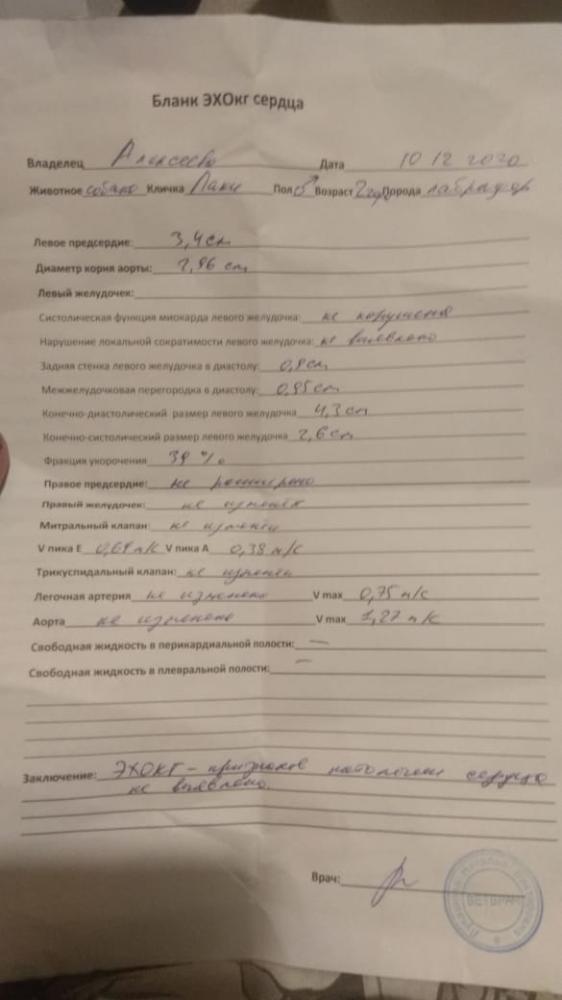 Бланк ЭХОкг сердца
Владелец Алексеева Дата 10 12 2020
Животное собака Кличка Лаки Пол ♂ Возраст 2 Порода лабрадор
Левое предсердие: 3,4 см
Диаметр корня аорты: 2,86 см
Левый желудочек:
Систолическая функция миокарда левого желудочка: не нарушена
Нарушение локальной сократимости левого желудочка: не выявлено
Задняя стенка левого желудочка в диастолу: 0,8 см
Межжелудочковая перегородка в диастолу: 0,85 см
Конечно-диастолический размер левого желудочка 4,3 см
Конечно-систолический размер левого желудочка 2,6 см
Фракция укорочения 39 %
Правое предсердие: не расширено
Правый желудочек: не изменен
Митральный клапан: не изменен
V пика Е м/с V пика А 0,38 м/с
Трикуспидальный клапан: не изменен
Легочная артерия не изменена V max 0,75 м/с
Аорта не изменена V max 1,27 м/с
Свободная жидкость в перикардиальной полости: —
Свободная жидкость в плевральной полости: —
Заключение: ЭХОКГ – признаков патологии сердца
не выявлено.
Врач:
ВЕТВРАЧ